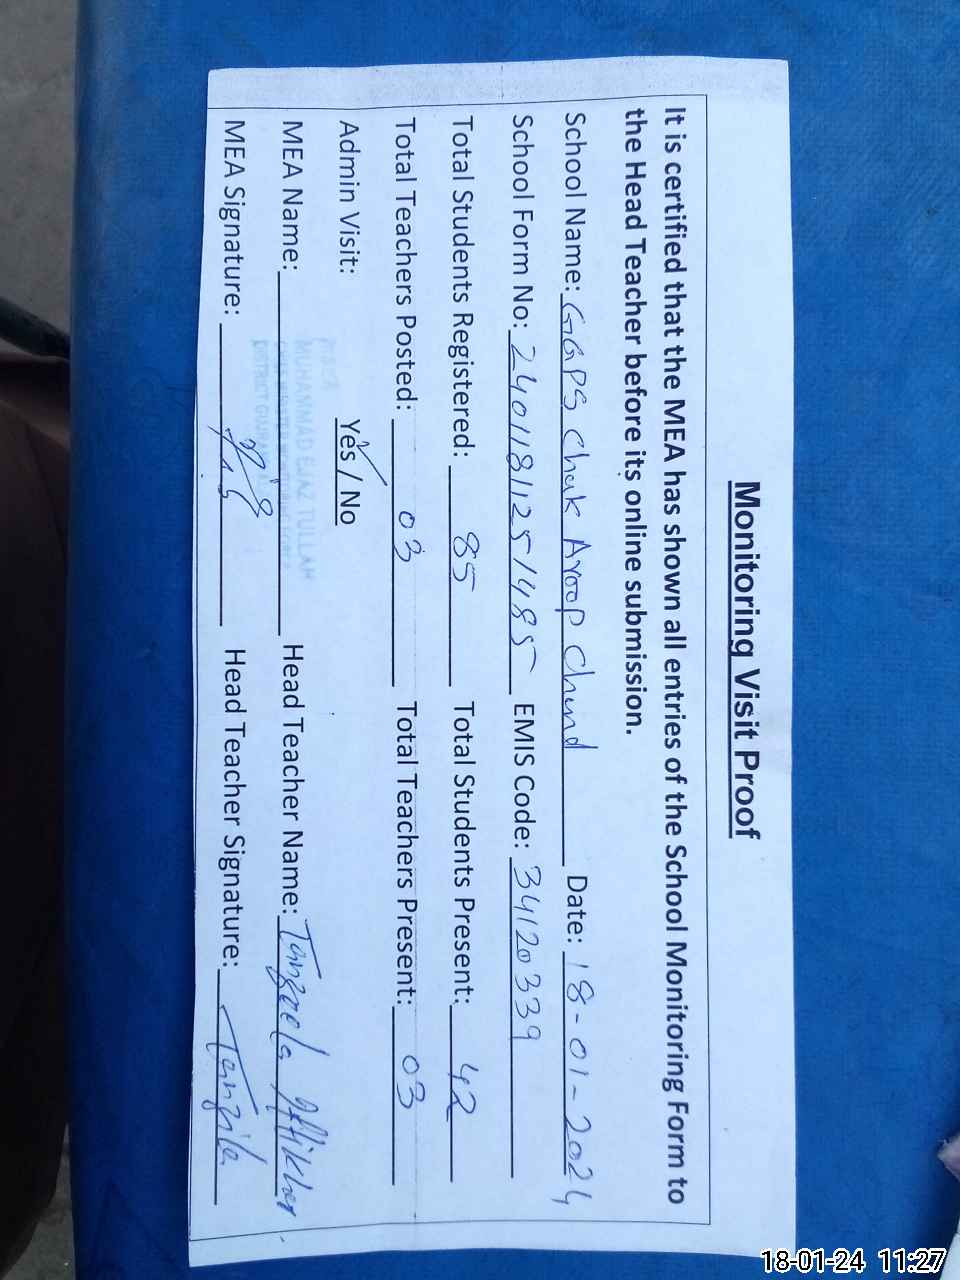 Monitoring Visit Proof
It is certified that the MEA has shown all entries of the School Monitoring Form to
the Head Teacher before its online submission.
School Name: GGPS Chak Aroop Chund Date: 18-01-2024
School Form No: 24011811251485 EMIS Code: 34120339
Total Students Registered: 85 Total Students Present: 42
Total Teachers Posted: 03 Total Teachers Present: 03
Admin Visit: Yes / No
MEA Name: MUHAMMAD EJAZ TULLAH Head Teacher Name: Tanzeela Iftikhar
MEA Signature: Head Teacher Signature: Tanzila
18-01-24 11:27